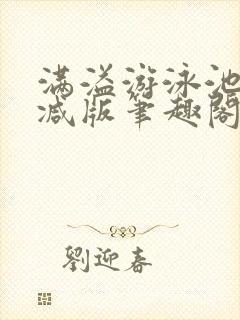 满溢游泳池
减版笔趣阁
劉迎春